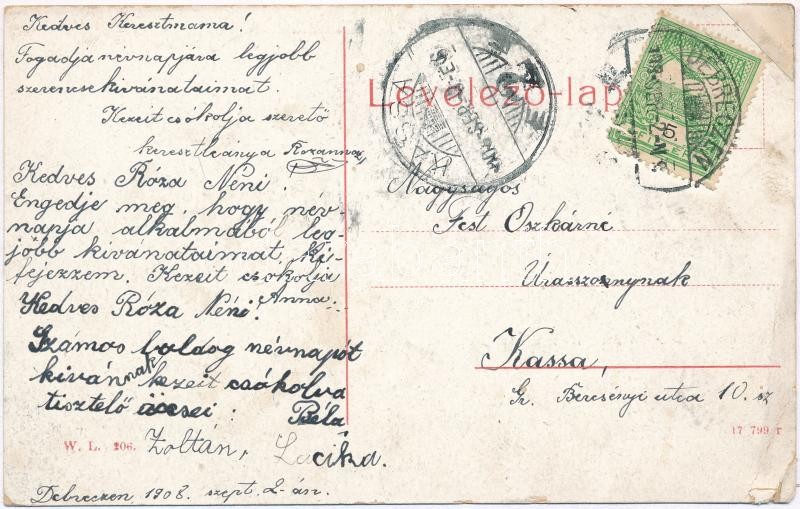 Kedves Keresztmama!
Fogadja névnapjára legjobb
szerencsekivánataimat.
Kezeit csókolja szerető
keresztleánya Rozanna,
Kedves Róza Néni!
Engedje meg hogy név-
napja alkalmából leg-
jobb kivánataimat ki-
fejezzem. Kezeit csokolja
Anna.
Kedves Róza Néni!
Számos boldog névnapot
kivánnak kezeit csókolva
tisztelő öcsei: Béla
Zoltán, Lacika.
Debreczen, 1908. szept. 2-án.
W. L. 206.
Levelező-lap
KASSA
DEBRECZEN
Nagyságos
Fest Oszkárné
Úrasszonynak
Kassa,
Gr. Bercsényi utca 10. sz
17 799 r